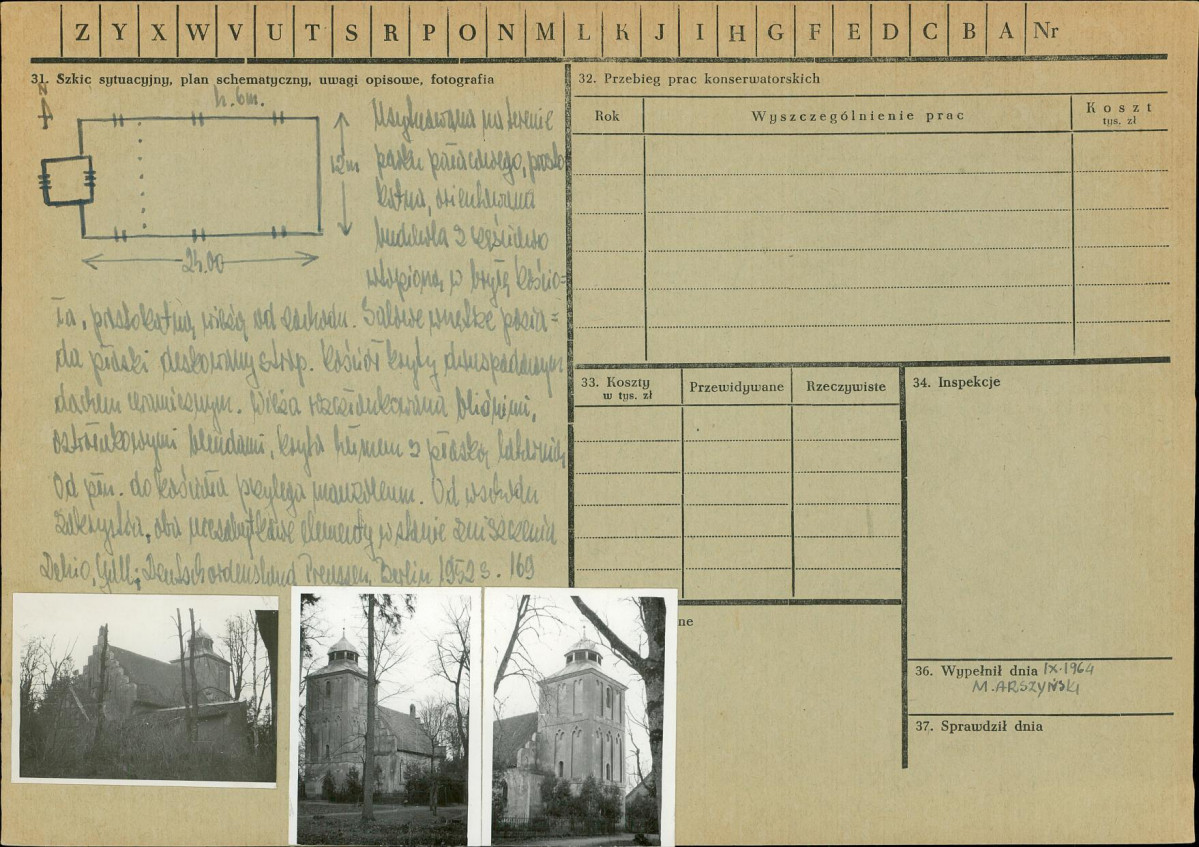 Z Y X W V U T S R P O N M L K J I H G F E D C B A Nr
31. Szkic sytuacyjny, plan schematyczny, uwagi opisowe, fotografia
N
h. 6m.
12m
24.00
Usytuowana na terenie
parku pałacowego, prosto
kątna, orientowana
budowla z częściowo
wtopioną w bryłę kościo-
ła, prostokątną wieżą od zachodu. Salowe wnętrze posia=
da płaski deskowany strop. Kościół kryty dwuspadowym
dachem ceramicznym. Wieża rozczłonkowana bliźnimi,
ostrołukowymi blendami, kryta hełmem z płaską latarnią
Od płn. do kościoła przylega mauzoleum. Od wschodu
Zakrystia, oba niezabytkowe elementy w stanie zniszczenia
Dehio, Gall; Deutschordensland Preussen, Berlin 1952 s. 169
32. Przebieg prac konserwatorskich
Rok
Wyszczególnienie prac
Koszt
tys. zł
33. Koszty
w tys. zł
Przewidywane
Rzeczywiste
34. Inspekcje
ne
36. Wypełnił dnia IX.1964
M. ARSZYŃSKI
37. Sprawdził dnia